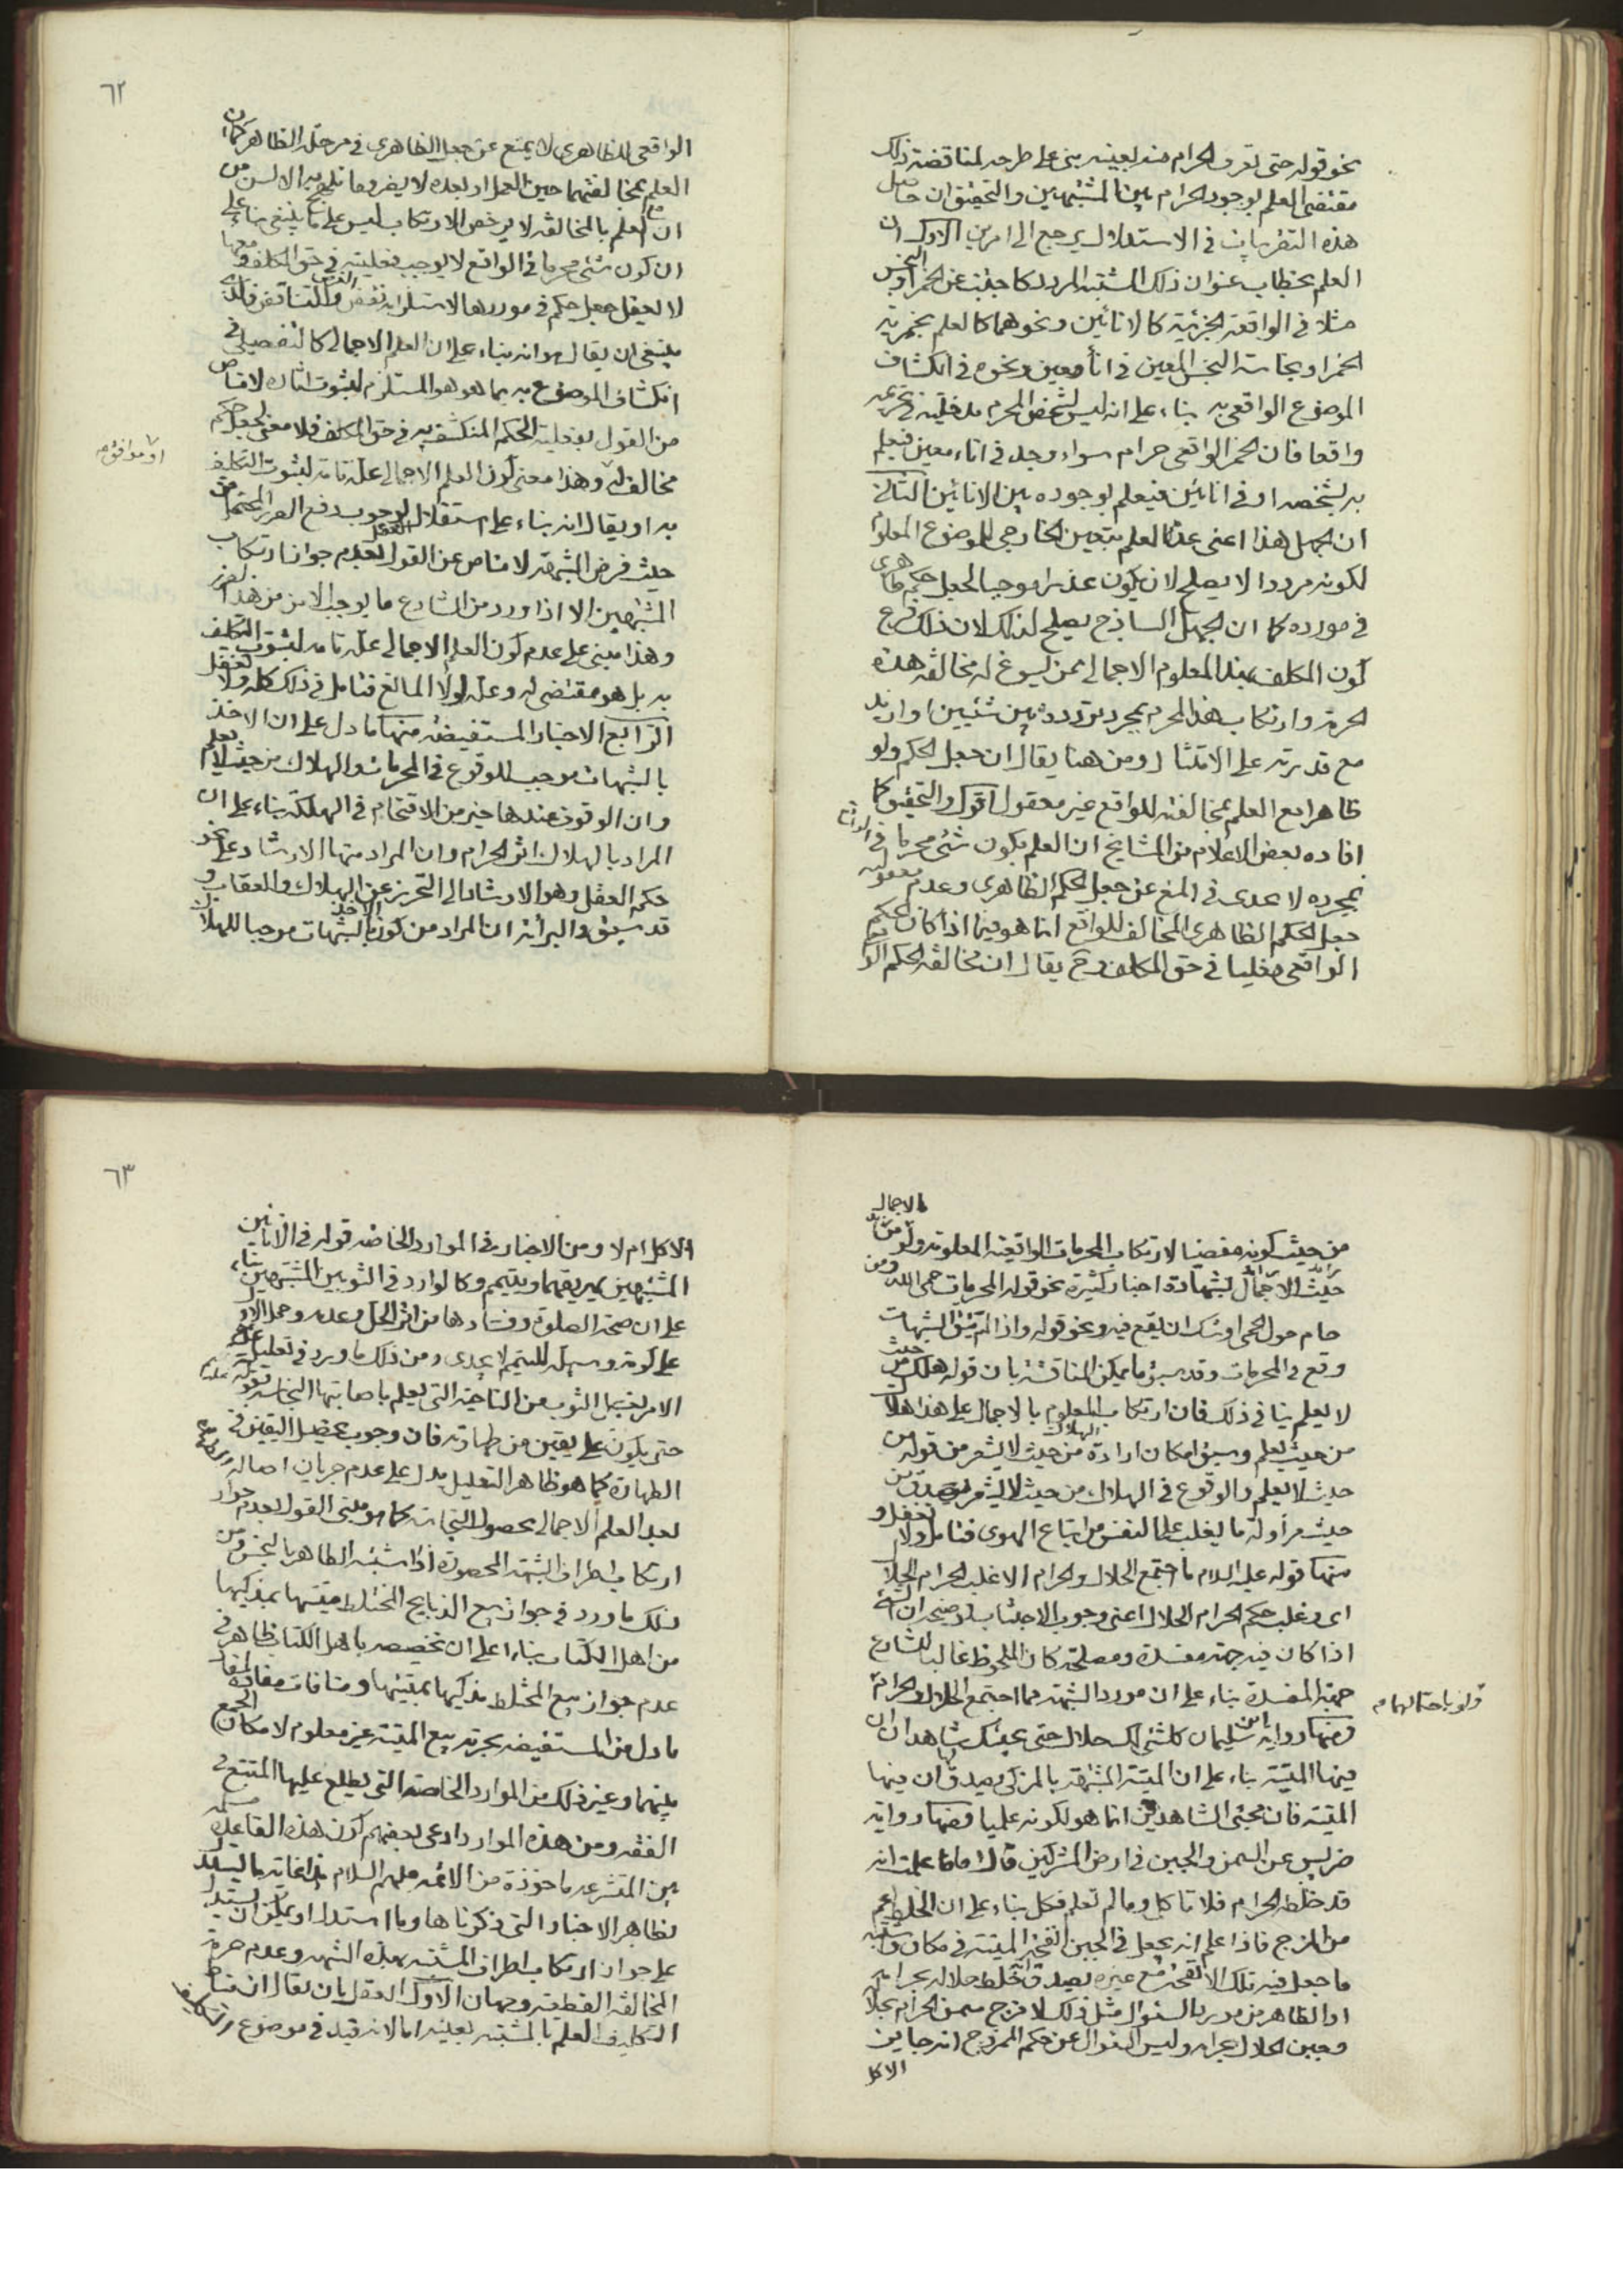 نحو قوله حتى تعرف الحرام منه بعينه بنى على طرحه لمناقضة ذلك
مقتضى العلم لوجود الحرام بين المشتبهين والتحقيق ان حاصل
هذه التقريبات في الاستدلال يرجع الى امرين الاول ان
العلم بخطاب عنوان ذلك المشتبه المردد كاجتنب عن الخمر او النجس
مثلا في الواقعة الجزئية كالانائين ونحوهما كالعلم بخمرية
الخمر او نجاسة النجس المعين في اناء معين ونحوه في انكشاف
الموضوع الواقعي به بناء على انه ليس لشخص المحرم مدخلية في تحريمه
واقعا فان الخمر الواقعي حرام سواء وجد في اناء معين فيعلم
به بشخصه او في انائين فيعلم بوجوده بين الانائين الثاني
ان الجهل هذا اعني عدم العلم بتعيين الخارجي للموضوع المعلوم
لكونه مرددا لا يصلح لان يكون عذرا موجبا لجعل حكم ظاهري
في مورده كما ان الجهل الساذج يصلح لذلك لان ذلك فرع
كون المكلف بهذا المعلوم الاجمالي ممن يسوغ له مخالفة هذه
الحرمة وارتكاب هذا المحرم بمجرد تردده بين شيئين او ازيد
مع قدرته على الامتثال ومن هنا يقال ان جعل الحكم ولو
ظاهرا مع العلم بمخالفته للواقع غير معقول اقول والتحقيق كما
افاده بعض الاعلام من المشايخ ان العلم بكون شيء محرما في الواقع
بمجرده لا يجدى في المنع عن جعل الحكم الظاهري وعدم معقولية
جعل الحكم الظاهري المخالف للواقع انما هو فيما اذا كان الحكم
الواقعي فعليا في حق المكلف وح يقال ان مخالفة الحكم
٦٢
الواقعي للظاهري لا يمنع عن جعل الظاهري في مرحلة الظاهر كما ان
العلم بمخالفتهما حين العمل او بعده لا يضر وما تلهج به الالسن من
ان مع العلم بالمخالفة لا يرخص الارتكاب ليس على ما ينبغي بناء على
ان كون شيء محرما في الواقع لا يوجب فعليته في حق المكلف ومعها
لا يعقل جعل حكم في موردها لاستلزامه نقض الغرض والتناقض فالذي
ينبغي ان يقال هو انه بناء على ان العلم الاجمالي كالتفصيلي في
انكشاف الموضوع به بما هو هو المستلزم لثبوت اثاره لا مناص
من القول بفعلية الحكم المنكشف به في حق المكلف فلا معنى لجعل حكم
مخالف له وهذا معنى كون العلم الاجمالي علة تامة لثبوت التكليف
او موافق
به او يقال انه بناء على استقلال العقل بوجوب دفع الضرر المحتمل
حيث فرض الشبهة لا مناص عن القول بعدم جواز ارتكاب
المشتبهين الا اذا ورد من الشارع ما يوجب الامن من هذا الضرر
وهذا مبنى على عدم كون العلم الاجمالي علة تامة لثبوت التكليف
به بل هو مقتضى له وعلة لولا المانع فتامل في ذلك كله ولا تغفل
الرابع الاخبار المستفيضة منها ما دل على ان الاخذ
بالشبهات موجب للوقوع في المحرمات والهلاك من حيث لا يعلم
وان الوقوف عندها خير من الاقتحام في الهلكة بناء على ان
المراد بالهلاك اثر الحرام وان المراد منها الارشاد على نحو
حكم العقل وهو الارشاد الى التحرز عن الهلاك والعقاب و
قد سبق والبرائة ان المراد من كون الاخذ بالشبهات موجبا للهلاك
من حيث كونه مفضيا لارتكاب المحرمات الواقعية المعلومة ولو
بالاجمال
حيث الاجمال بشهادة اخبار كثيرة نحو قوله المحرمات حمى الله ومن
حام حول الحمى اوشك ان يقع فيه ونحو قوله واذا لم يتق الشبهات
وقع في المحرمات وقد سبق ما يمكن المناقشة بان قوله هلك من حيث
لا يعلم ينافي ذلك فان ارتكاب المعلوم بالاجمال على هذا هلاك
من حيث يعلم وسبق امكان ارادة الهلاك من حيث لا يشعر من قوله من
حيث لا يعلم والوقوع في الهلاك من حيث لا يشعر يصدق من
حيث مرأوله ما يغلب على النفس من اتباع الهوى فتامل ولا تغفل و
منها قوله عليه السلام ما اجتمع الحلال والحرام الا غلب الحرام الحلال
اى وغلب حكم الحرام الحلال اعني وجوب الاجتناب لوضوح ان الشيء
اذا كان فيه جهة مفسدة ومصلحة كان الملحوظ غالبا للشارع
جهة المفسدة بناء على ان مورد الشبهة مما اجتمع الحلال والحرام
ولو باحتمالهما
ومنها رواية ابن سليمان كل شيء لك حلال حتى يجيئك شاهدان ان
فيها الميتة بناء على ان الميتة المشتبهة بالمزكى يصدق ان فيها
الميتة فان مجئ الشاهدين انما هو لكونه علميا ومنها رواية
ضريس عن السمن والجبن في ارض المشركين قال اما ما علمت انه
قد خلطه الحرام فلا تاكل وما لم تعلم فكل بناء على ان الخلط اعم
من المزج فاذا علم انه يجعل في الجبن انفحة الميتة في مكان واشتبه
ما جعل فيه تلك الانفحة مع غيره يصدق خلط حلاله بحرامه
او الظاهر من مورد السئوال مثل ذلك لا مزج سمن الحرام بحلال
وجبن الحلال بحرام وليس السئوال عن حكم الممزوج انه جايز
الاكل
٦٣
الاكل ام لا ومن الاخبار في الموارد الخاصة قوله في الانائين
المشتبهين يهريقهما ويتيمم وكالوارد في الثوبين المشتبهين بناء
على ان صحة الصلوة وفسادها من اثر الحل وعدمه وحمل الاول
على كونه وسيلة للتيمم لا يجدى ومن ذلك ما ورد في تعليل
الامر بغسل الثوب من الناحية التي يعلم باصابتها النجاسة بقوله
حتى يكون على يقين من طهارته فان وجوب تحصيل اليقين في
الطهارة كما هو ظاهر التعليل يدل على عدم جريان اصالة الطهارة
بعد العلم الاجمالي بحصول النجاسة كما هو مبنى القول بعدم جواز
ارتكاب اطراف الشبهة المحصورة اذا اشتبه الطاهر بالنجس ومن
ذلك ما ورد في جواز بيع الذبايح المختلط ميتتها بمذكيها
من اهل الكتاب بناء على ان تخصيصه باهل الكتاب ظاهر في
عدم جواز بيع المختلط مذكيها بميتتها ومنافات مفادها
ما دل من المستفيضة بحرمة بيع الميتة غير معلوم لامكان الجمع
بينهما وغير ذلك من الموارد الخاصة التي يطلع عليها المتتبع في
الفقه ومن هذه الموارد ادعى بعضهم كون هذه القاعدة مسلمة
بين المتشرعة ماخوذة من الائمة عليهم السلام هذا غاية ما يستدل
بظاهر الاخبار التي ذكرناها وما استدل او يمكن ان يستدل
على جواز ارتكاب اطراف المشتبه بهذه الشبهة وعدم حرمة
المخالفة القطعية وجهان الاول العقل بان يقال ان مناط
التكليف العلم بالمشتبه بعينه اما لانه قيد في موضوع التكليف